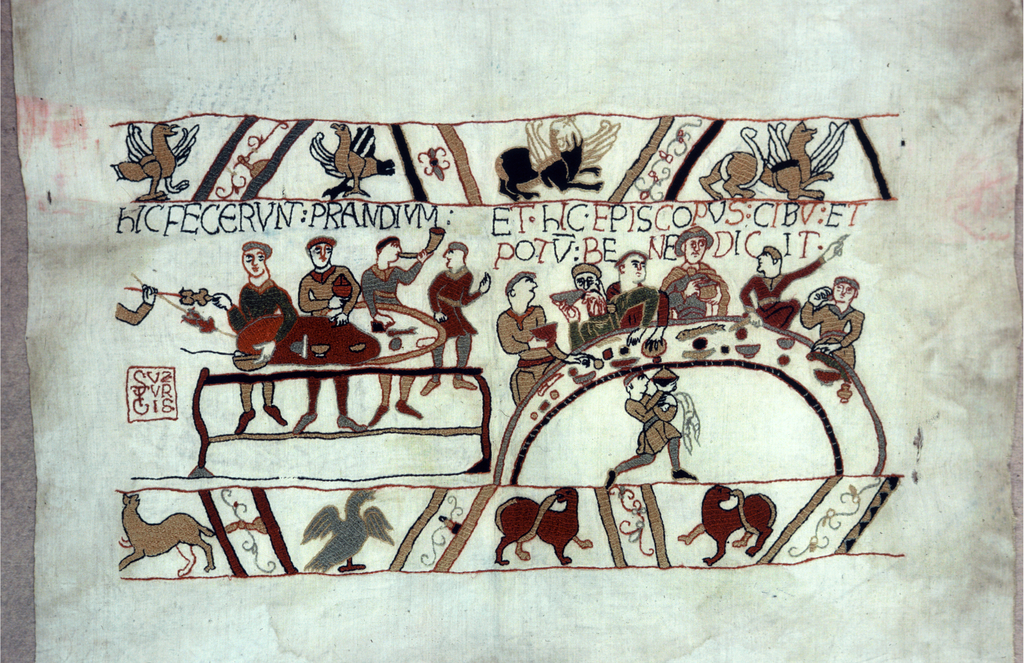 hIC FECERVNT : PRANDIVM :
ET · hIC · EPISCOPVS : CIBV : ET
POTV̄ : BENEDICIT ·